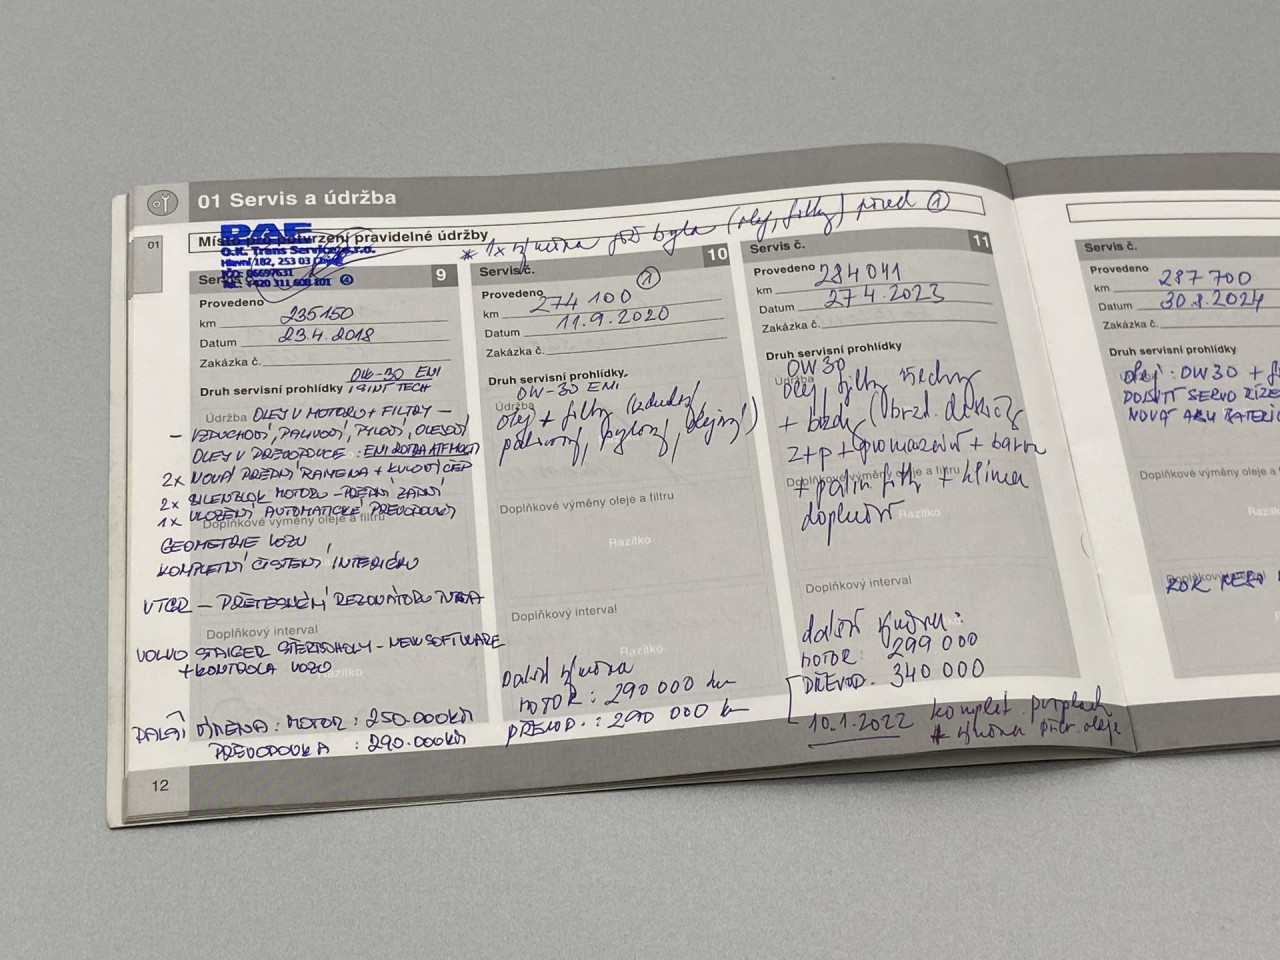 01 Servis a údržba
01
Místo pro potvrzení pravidelné údržby
* 1x výměna již byla (olej, filtry) před ①
DAF
O.K. Trans Service s.r.o.
Hlavní 182, 253 03 Chýně
IČO: 06697631
Tel.: +420 311 608 101 ④
9
Provedeno
km 235150
Datum 23.4.2018
Zakázka č.
Druh servisní prohlídky 0W-30 ENI
I SINT TECH
Údržba OLEJ V MOTORU + FILTRY –
– VZDUCHOVÝ, PALIVOVÝ, PYLOVÝ, OLEJOVÝ
OLEJ V PŘEVODOVCE : ENI ROTRA ATF MULTI
2x NOVÁ PŘEDNÍ RAMENA + KULOVÝ ČEP
2x SILENTBLOK MOTORU – PŘEDNÍ, ZADNÍ
1x ULOŽENÍ AUTOMATICKÉ PŘEVODOVKY
Doplňkové výměny oleje a filtru
GEOMETRIE VOZU
KOMPLETNÍ ČIŠTĚNÍ INTERIÉRU
VTGR – PŘETĚSNĚNÍ REZONÁTORU TURBA
Doplňkový interval
VOLVO STAIGER ŠTĚRBOHOLY – NEW SOFTWARE
+ KONTROLA VOZU
Razítko
DALŠÍ VÝMĚNA : MOTOR : 250.000km
PŘEVODOVKA : 290.000km
Servis č. 10
Provedeno ①
km 274 100
Datum 11.9.2020
Zakázka č.
Druh servisní prohlídky
0W-30 ENI
Údržba
olej + filtry (vzduch,
palivový, pylový, olejový)
Doplňkové výměny oleje a filtru
Razítko
Doplňkový interval
Razítko
Další výměna
MOTOR : 290 000 km
PŘEVOD. : 290 000 km
Servis č. 11
Provedeno
km 284041
Datum 27 4.2023
Zakázka č.
Druh servisní prohlídky
0W30
Údržba
olej filtry všechny
+ brzdy (brzd. destičky
z+p + promazání + barva
Doplňkové výměny oleje a filtru
+ palin filtr + klima
doplnění
Razítko
Doplňkový interval
další výměna:
MOTOR: 299 000
PŘEVOD. 340 000
10.1.2022 komplet. proplach
* výměna přev. oleje
Servis č.
Provedeno
km 287 700
Datum 30.8.2024
Zakázka č.
Druh servisní prohlídky
olej : 0W30 +
DOLNÍTÍ SERVO ŘÍZE
NOVÁ AKU BATERIE
Doplňkové výměny oleje a
Doplňkový interval
ROK NEBO
12